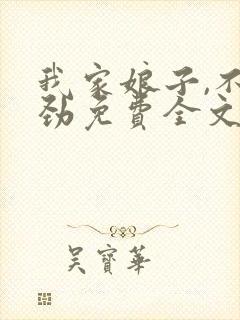 我家娘子,不
劲免费全文
吴寶華